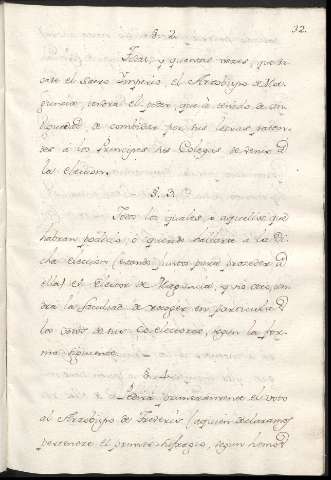 32.
§. 2.
Todas, y quantas vezes, que va-
care el Sacro Imperio, el Arzobispo de Ma-
guncia, tendrá el poder, que à tenido de An-
tiguedad, de combidar por sus letras
a los Principes sus Colegas de venir â
la election.
§. 3.
Todos los quales, o aquellos que
habran podido, ò querido hallarse à la di-
cha election (estando juntos para proceder â
ella) el Elector de Maguncia, y no otro, ten-
drá la facultad de recoger en particular
los votos de sus Co-electores, segun la for-
ma siguiente.
§. 4.
Pedirá primeramente el voto
al Arzobispo de Treveris (a quien declaramos
pertenecer el primer sufragio, segun hemos